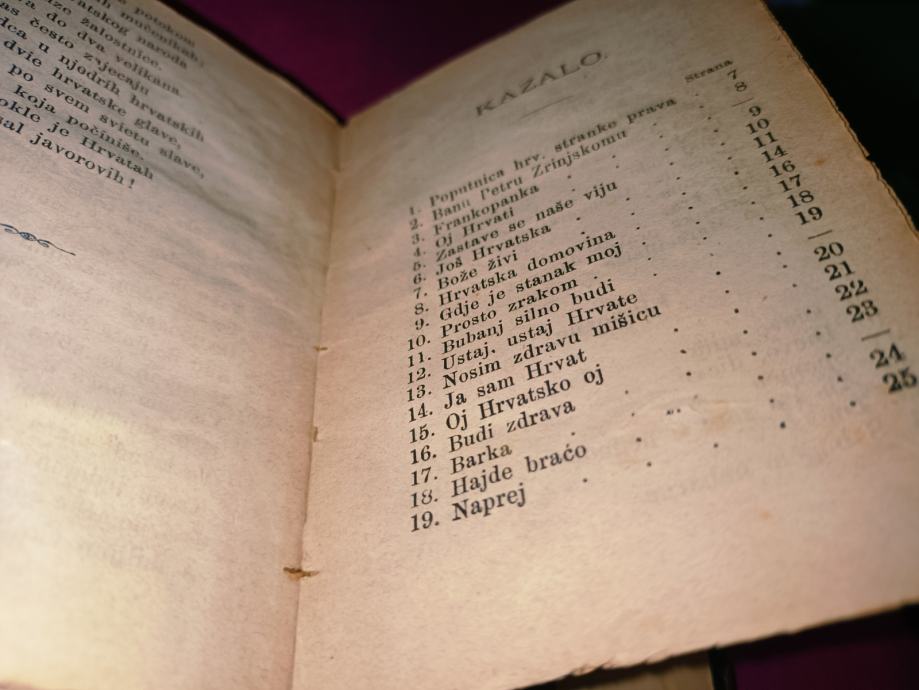 potokom
mučenikah:
naroda
žalostnice.
do dva velikana
često zvjecaju
u njedrih hrvatskih
dvie hrvatske glave,
po svem svietu slave,
koja počiniše.
je Hrvatah
javorovih!
KAZALO.
Strana
1. Poputnica hrv. stranke prava . 7
2. Banu Petru Zrinjskomu . . 8
3. Frankopanka . . . —
4. Oj Hrvati . . . 9
5. Zastave se naše viju . . 10
6. Još Hrvatska . . . 11
7. Bože živi . . . 14
8. Hrvatska domovina . . . 16
9. Gdje je stanak moj . . . 17
10. Prosto zrakom . . . . 18
11. Bubanj silno budi . . . 19
12. Ustaj, ustaj Hrvate . . . —
13. Nosim zdravu mišicu . . . 20
14. Ja sam Hrvat . . . 21
15. Oj Hrvatsko oj . . . 22
16. Budi zdrava . . . . 23
17. Barka . . . . —
18. Hajde braćo . . . . 24
19. Naprej . . . . . 25